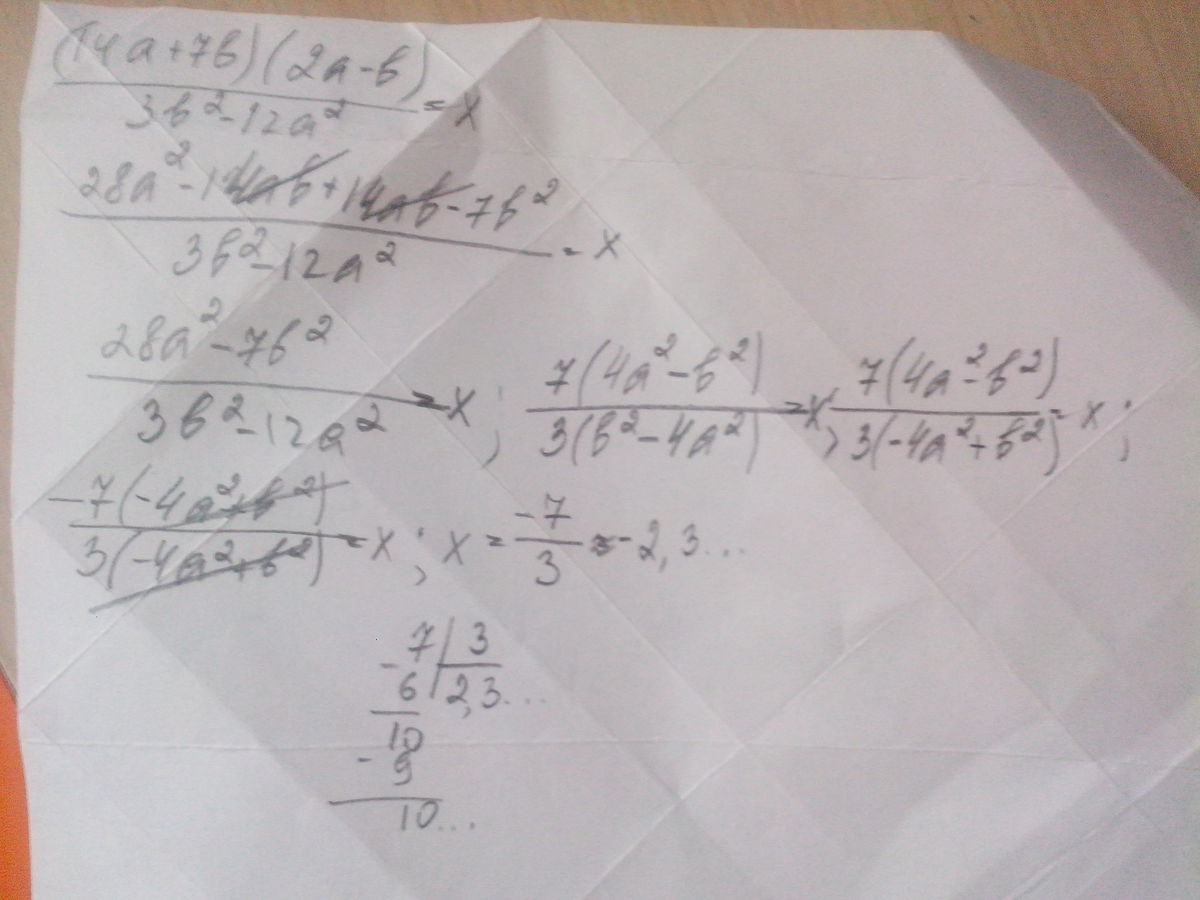 (14a+7b)(2a-b)/3b²-12a² = x
28a²-14ab+14ab-7b²/3b²-12a² = x
28a²-7b²/3b²-12a² = x; 7(4a²-b²)/3(b²-4a²) = x; 7(4a²-b²)/3(-4a²+b²) = x;
-7(-4a²+b²)/3(-4a²+b²) = x; x = -7/3 = -2,3...
-7 | 3
6 | 2,3...
10
- 9
10...